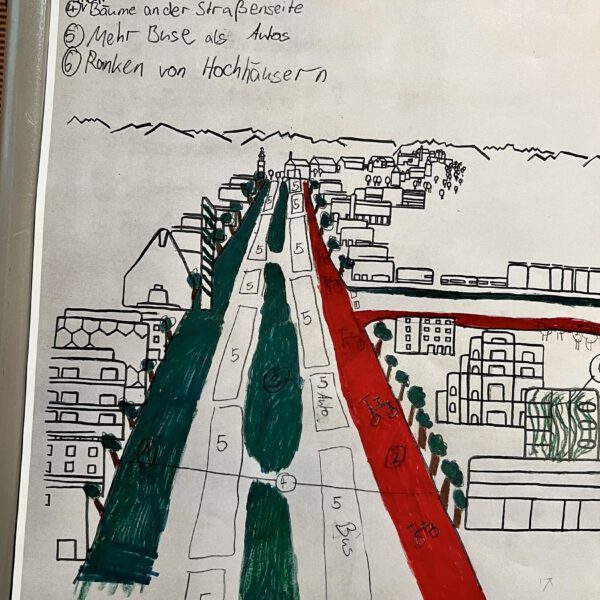 ④ Bäume an der Straßenseite
⑤ Mehr Buse als Autos
⑥ Ranken von Hochhäusern
5
5
5
5
5
5
5
5
5
5 Auto
2
5
4
5 Bus
5